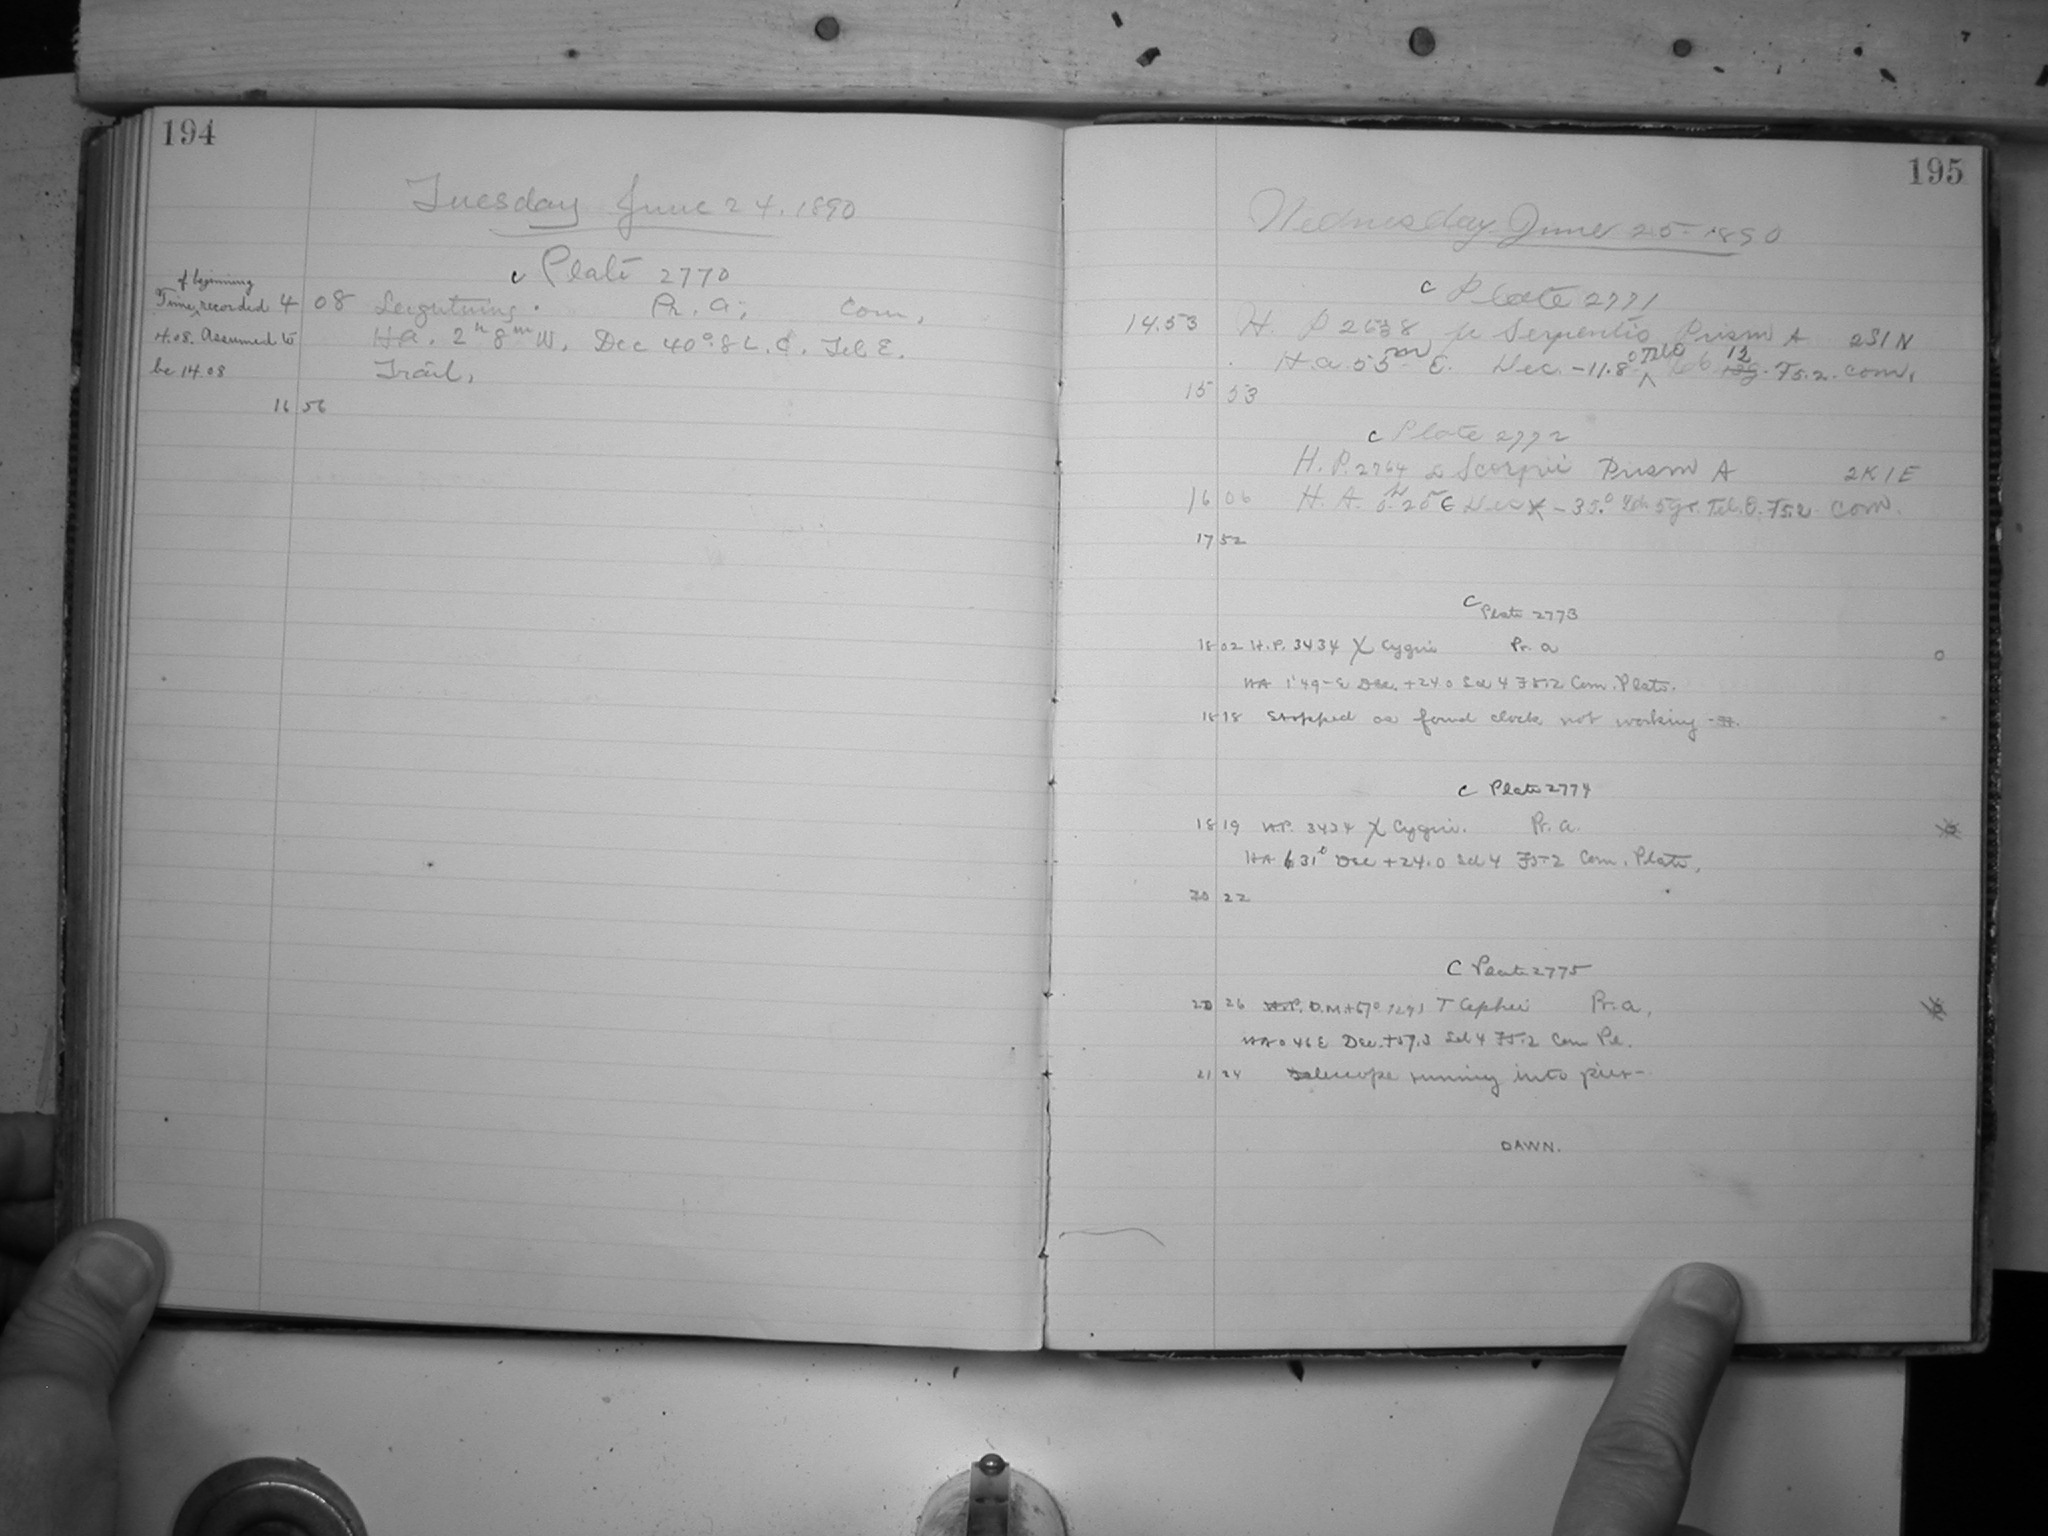 194
Tuesday June 24. 1890
c Plate 2770
of beginning
Time recorded 4 08 Leightning. Pr. a; Com,
4.08. Assumed to Ha. 2h 8m W. Dec 40°.8 L.C. Tel E.
be 14.08 Trail,
16 56
195
Wednesday June 25. 1890
c Plate 2771
14.53 H. P 2638 μ Serpentis Prism A 2S1N
Ha 55m E. Dec. -11.8° 12 F5.2. com,
15 53
c Plate 2772
H. P. 2764 Scorpii Prism A 2K1E
16 06 H. A. E Dec - 35.° 5gr. Tel. E. F5.2 com.
17 52
c
Plate 2773
18 02 H.P. 3434 χ Cygni Pr. a
HA 1 49 - E Dec. +24.0 Sid 4 F5.2 Com. Plate.
18 18 Stopped as found clock not working
c Plate 2774
18 19 H.P. 3434 χ Cygni. Pr. a.
HA 31 Dec +24.0 Sid 4 F5.2 Com. Plate,
20 22
C Plate 2775
20 26 H.P. D.M. +67° 1291 T Cephei Pr. a,
HA 0 46 E Dec. +57.3 Sid 4 F5.2 Com Pl.
21 24 Telescope running into pier-
DAWN.